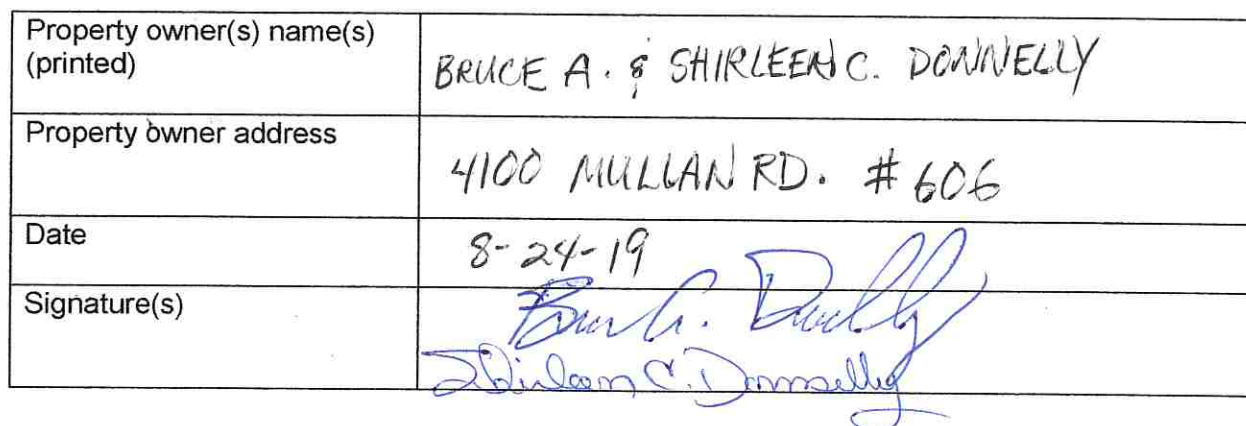 Property owner(s) name(s)
(printed)
BRUCE A. & SHIRLEEN C. DONNELLY
Property owner address
4100 MULLAN RD. # 606
Date
8-24-19
Signature(s)
Bruce A. Donnelly
Shirleen C. Donnelly